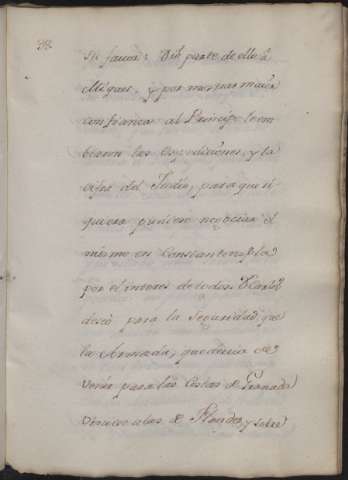 98.
su favor: Dió parte de ello à
Miguez, y por mostrar mayor
confianza al Principe le em
biaron las Expediciones, y la
cifra del Judio, para que si
quiera pudiese negociar él
mismo en Constantinopla
por el interes de todos. Carlos
deseó para la Seguridad que
la Armada, que devia
venir para las Costas de Granada
à las de Flandes, y sobre